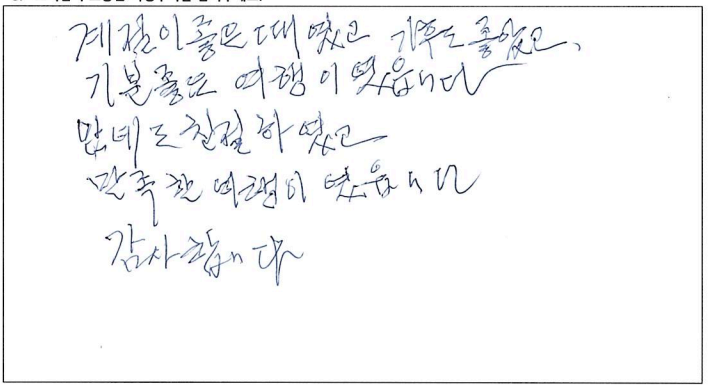 계절이 좋은 때 였고 기후도 좋았고,
기분 좋은 여행이 였읍니다
안내도 친절하였고
만족한 여행이 였읍니다
감사합니다